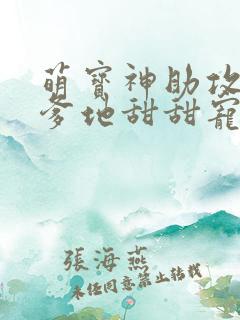 萌寶神助攻
爹地甜甜寵
張海燕
未經同意禁止轉載